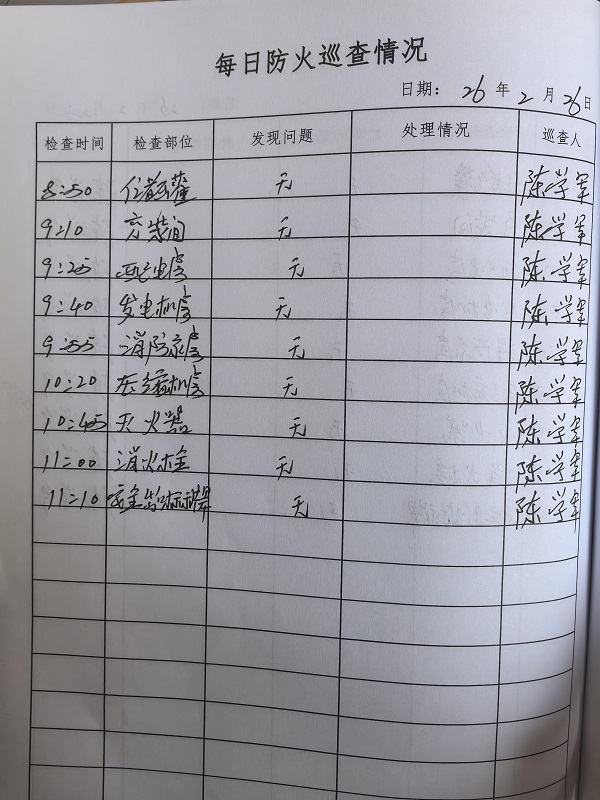 每日防火巡查情况
日期： 26 年 2 月 26日
检查时间 检查部位 发现问题 处理情况 巡查人
8:50 储罐 无 陈学军
9:10 充装间 无 陈学军
9:25 配电房 无 陈学军
9:40 发电机房 无 陈学军
9:55 消防泵房 无 陈学军
10:20 压缩机房 无 陈学军
10:45 灭火器 无 陈学军
11:00 消火栓 无 陈学军
11:10 安全警示标牌 无 陈学军